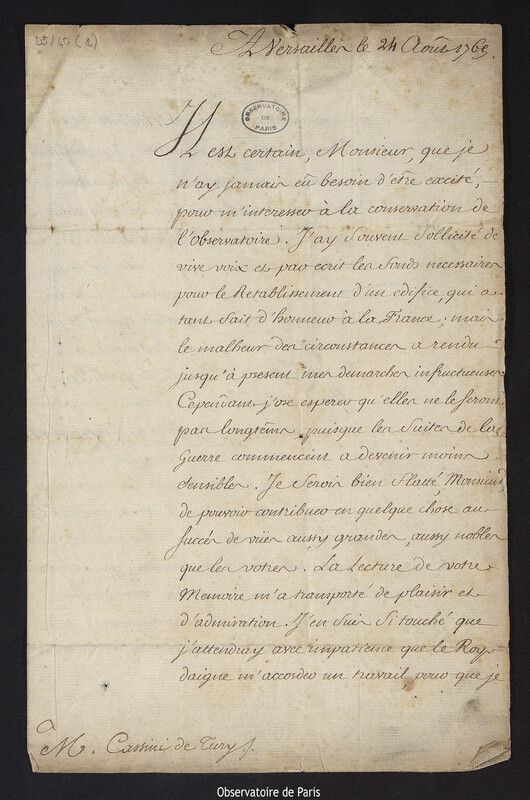 D5/40 (1)
A Versailles le 24 Août 1765.
OBSERVATOIRE
DE
PARIS
Il est certain, Monsieur, que je
n'ay jamais eü besoin d'etre excité,
pour m'interesser à la conservation de
l'Observatoire. J'ay souvent sollicité de
vive voix et par ecrit les fonds necessaires
pour le Retablissement d'un edifice, qui a
tant fait d'honneur à la France; mais
le malheur des circonstances a rendu
jusqu'à present mes demarches infructueuses
Cependant j'ose esperer qu'elles ne le seront
pas longtems, puisque les Suites de la
Guerre commencent a devenir moins
sensibles. Je serois bien flatté, Monsieur,
de pouvoir contribuer en quelque chose au
succés de vües aussy grandes, aussy nobles
que les votres. La Lecture de votre
Memoire m'a transporté de plaisir et
d'admiration. J'en suis si touché que
j'attendray avec impatience que le Roy
daigne m'accorder un travail, pour que je
M. Cassini de Tury
Observatoire de Paris